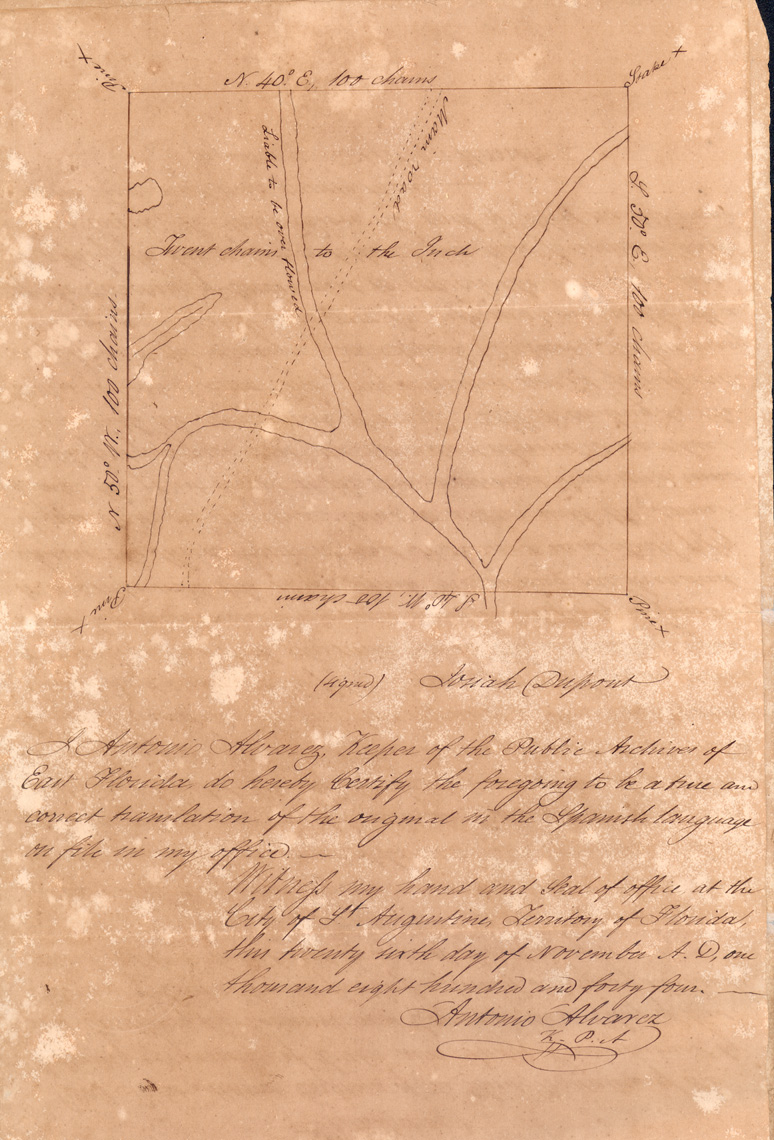 Pine X
N. 40° E, 100 chains
Stake X
Main road
Liable to be over flowed
Twent chains to the Inch
S. 50° E, 100 chains
N 50° W., 100 chains
Pine X
S. 40° W, 100 chains
Pine X
(signed) Josiah Dupont
I Antonio Alvarez, Keeper of the Public Archives of
East Florida, do hereby Certify the foregoing to be a true and
correct translation of the original in the Spanish language
on file in my office. —
Witness my hand and Seal of office at the
City of St Augustine, Territory of Florida,
this twenty sixth day of November A. D, one
thousand eight hundred and forty four. —
Antonio Alvarez
K. P. A